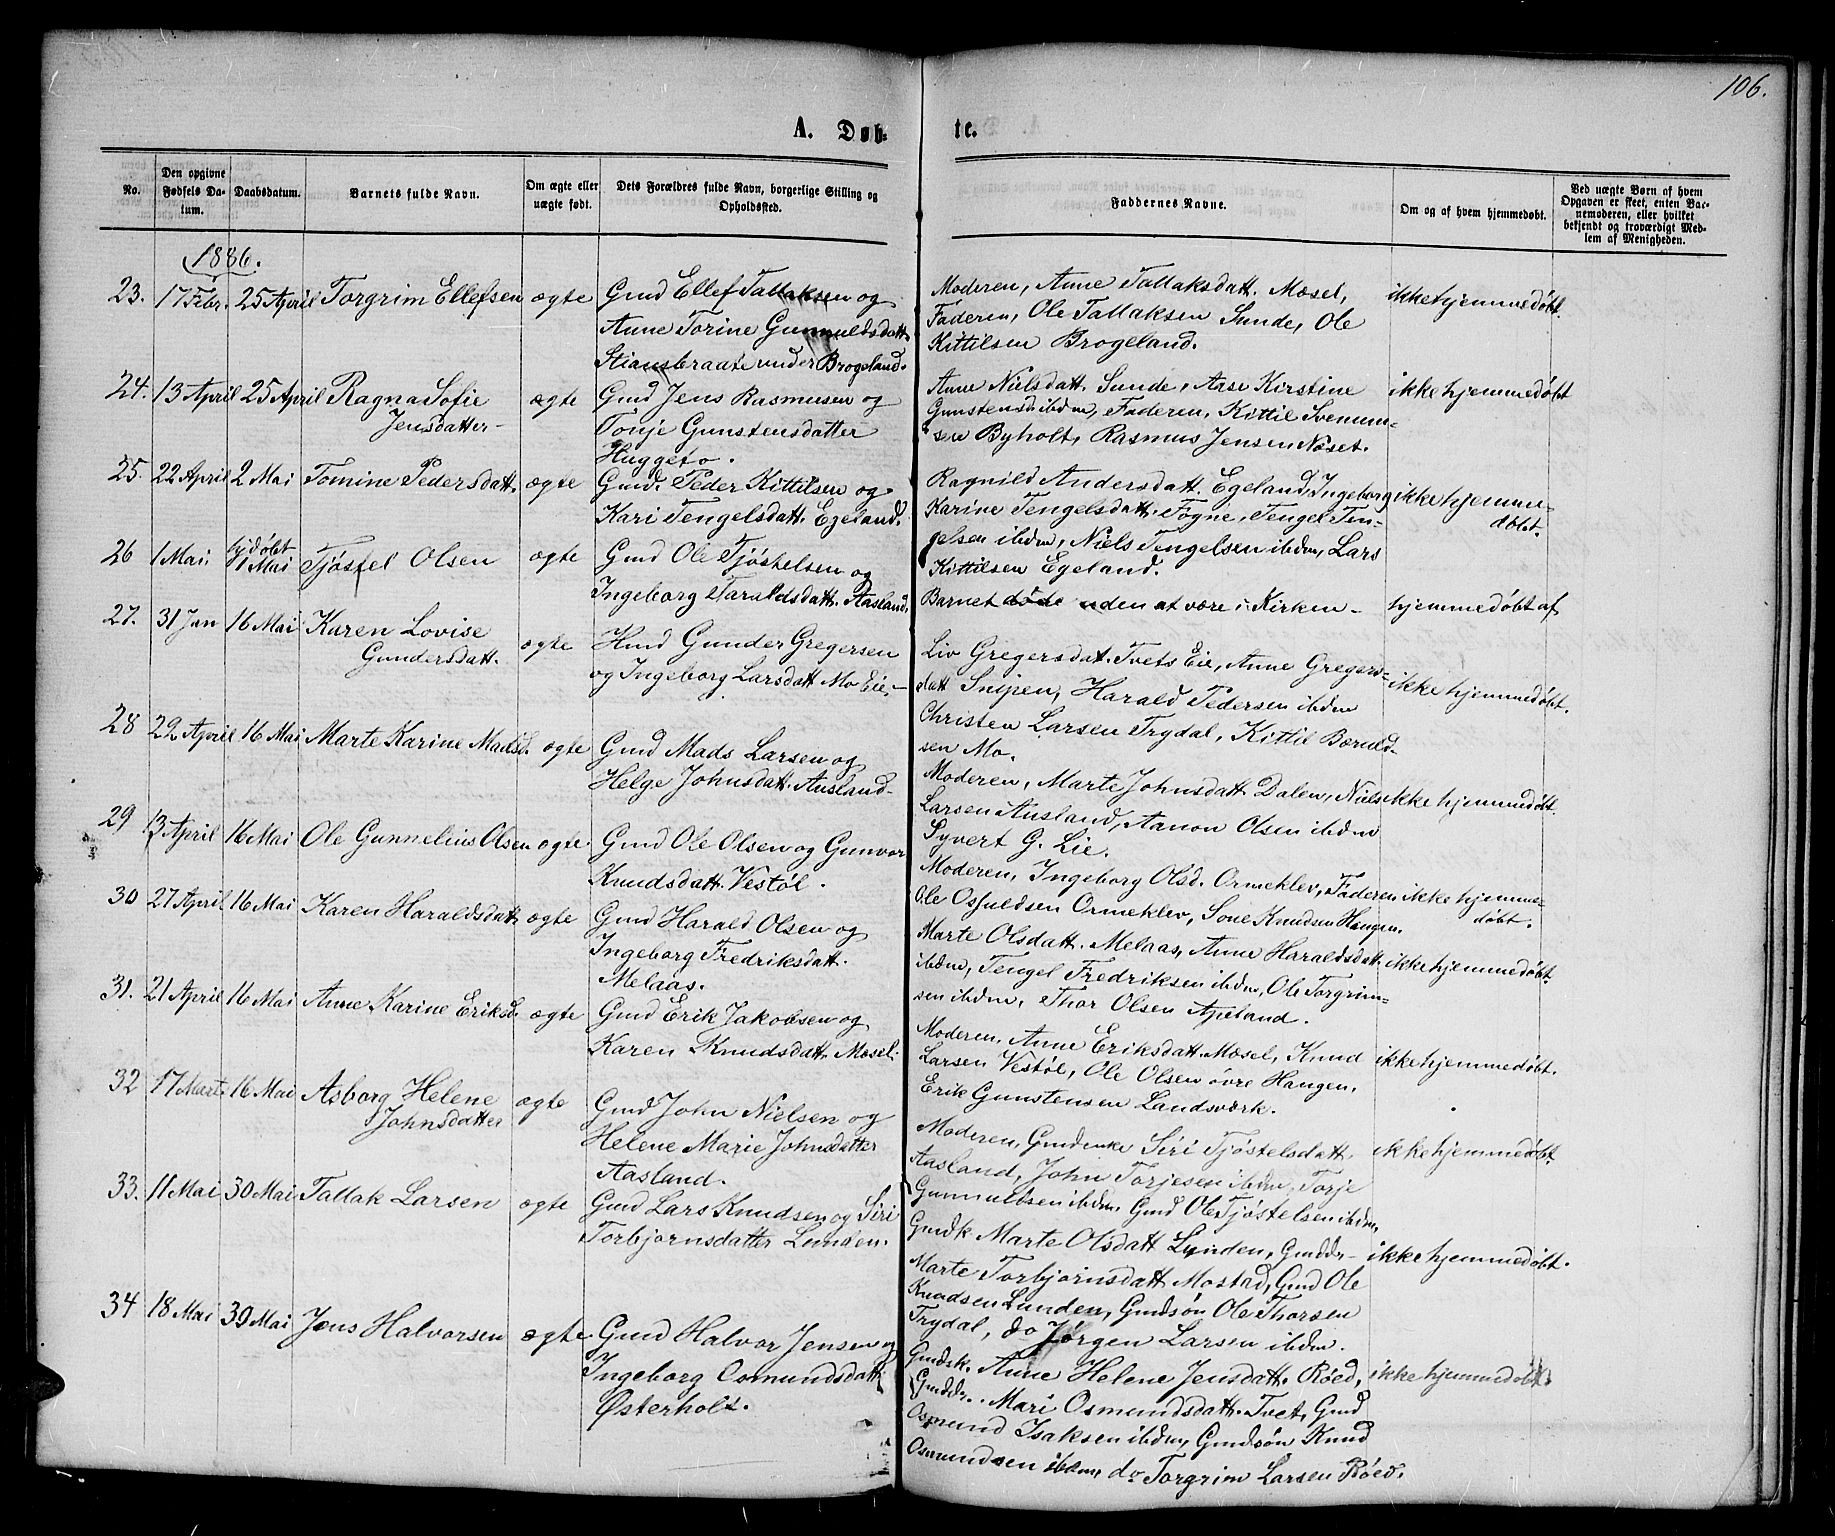 106.
A. Døb-
te.
No.
Den opgivne Fødsels Da-
tum.
Daabsdatum.
Barnets fulde Navn.
Om ægte eller
uægte født.
Dets Forældres fulde Navn, borgerlige Stilling og
Opholdssted.
Faddernes Navne.
Om og af hvem hjemmedøbt.
Ved uægte Børn af hvem
Opgaven er skeet, enten Bar-
nemoderen, eller hvilket
bekjendt og troværdigt Med-
lem af Menigheden.
1886.
23. 17 Febr. 25 April Torgrim Ellefsen ægte
Gmd Ellef Tallaksen og
Anne Torine Gunnuldsdatt.
Stiansbraate under Brogeland.
Moderen, Anne Tallaksdatt. Mæsel,
Faderen, Ole Tallaksen Sunde, Ole
Kittilsen Brogeland.
ikke hjemmedøbt
24. 13 April 25 April Ragna Sofie
Jensdatter
ægte
Gmd Jens Rasmusen og
Tonje Gunstensdatter
Huggeto.
Anne Nielsdatt. Sunde, Aase Kirstine
Gunstensd ibidm, Faderen, Kittil Svenum-
sen Byholt, Rasmus Jensen Næset.
ikke hjemmedøbt
25. 22 April 2 Mai Tomine Pedersdatt. ægte
Gmd. Peder Kittilsen og
Kari Tengelsdatt. Egeland.
Ragnild Andersdatt. Egeland, Ingeborg
Karine Tengelsdatt. Fogne, Tengel Ten-
gelsen ibidm, Niels Tengelsen ibidm, Lars
Kittilsen Egeland.
ikke hjemme-
døbt.
26 1 Mai. hjdøbt
1 Mai
Tjøstel Olsen ægte
Gmd Ole Tjøstelsen og
Ingeborg Taraldsdatt. Aasland.
Barnet døde uden at være i Kirken -
hjemmedøbt af
27. 31 Jan 16 Mai Karen Lovise
Gundersdatt.
ægte
Hmd Gunder Gregersen
og Ingeborg Larsdatt Mo Eie. -
Liv Gregersdat. Tvets Eie, Anne Gregers-
datt Snipen, Harald Pedersen ibidm
Christen Larsen Trydal, Kittil Bærulf-
sen Mo.
ikke hjemmedøbt.
28 22 April 16 Mai Marte Karine Madsd. ægte
Gmd Mads Larsen og
Helge Johnsdatt. Ausland-
Moderen, Marte Johnsdatt. Dalen, Niels
Larsen Ausland, Aanon Olsen ibidm
Syvert G. Lie.
ikke hjemmedøbt.
29 13 April 16 Mai Ole Gunnelius Olsen ægte.
Gmd Ole Olsen og Gunvor
Knudsdatt. Vestøl.
Moderen, Ingeborg Olsd. Ormeklev, Faderen
Ole Osfuldsen Ormeklev, Sone Knudsen Haugen.
ikke hjemme-
døbt.
30 27 April 16 Mai Karen Haraldsdatt. ægte
Gmd Harald Olsen og
Ingeborg Fredriksdatt.
Melaas.
Marte Olsdatt. Melaas, Anne Haraldsdatt.
ibidm, Tengel Fredriksen ibidm, Ole Torgrim-
sen ibidm, Thor Olsen Apeland.
ikke hjemmedøbt.
31. 21 April 16 Mai Anne Karine Eriksd. ægte
Gmd Erik Jakobsen og
Karen Knudsdatt. Mæsel.
Moderen, Anne Eriksdatt. Mæsel, Knud
Larsen Vestøl, Ole Olsen øvre Haugen,
Erik Gunstensen Landsværk.
ikke hjemmedøbt.
32 17 Marts 16 Mai Asborg Helene
Johnsdatter
ægte
Gmd John Nielsen og
Helene Marie Johnsdatter
Aasland.
Moderen, Gmdenke Siri Tjøstelsdatt.
Aasland, John Torjesen ibidm, Torje
Gunnulfsen ibidm, Gmd Ole Tjøstelsen ibidm,
ikke hjemmedøbt.
33. 11 Mai 30 Mai Tallak Larsen ægte
Gmd Lars Knudsen og Siri
Torbjørnsdatter Lunden.
Gmdk Marte Olsdatt Lunden, Gmddr -
Marte Torbjørnsdatt. Mostad, Gmd Ole
Knudsen Lunden, Gmdsøn Ole Thorsen
Trydal, do Jørgen Larsen ibidm.
ikke hjemmedøbt.
34 18 Mai 30 Mai Jens Halvorsen ægte
Gmd Halvor Jensen og
Ingeborg Osmundsdatt.
Østerholt.
Gmdsk. Anne Helene Jensdatt. Røed,
Gmddr. Mari Osmundsdatt. Tvet, Gmd
Osmund Isaksen ibidm, Gmdsøn Knud
Osmundsen ibidm, do Torgrim Larsen Røed.
ikke hjemmedøbt.